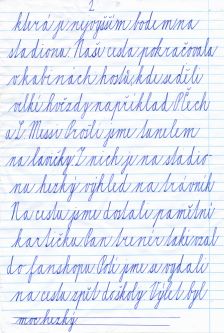 2
která je nejvyšším bodem na
stadionu. Naší cesta pokračovala
v kabinách hostů, kde seděli
velké hvězdy například P. Čech
a L. Messi. Prošli jsme tunelem
na lavičky. Z nich je na stadio-
nu hezký výhled na trávník.
Na cestu jsme dostali pamětní
kartičku. Pan trenér také vzal
do fanshopu. Poté jsme se vydali
na cestu zpět do školy. Výlet byl
moc hezký.